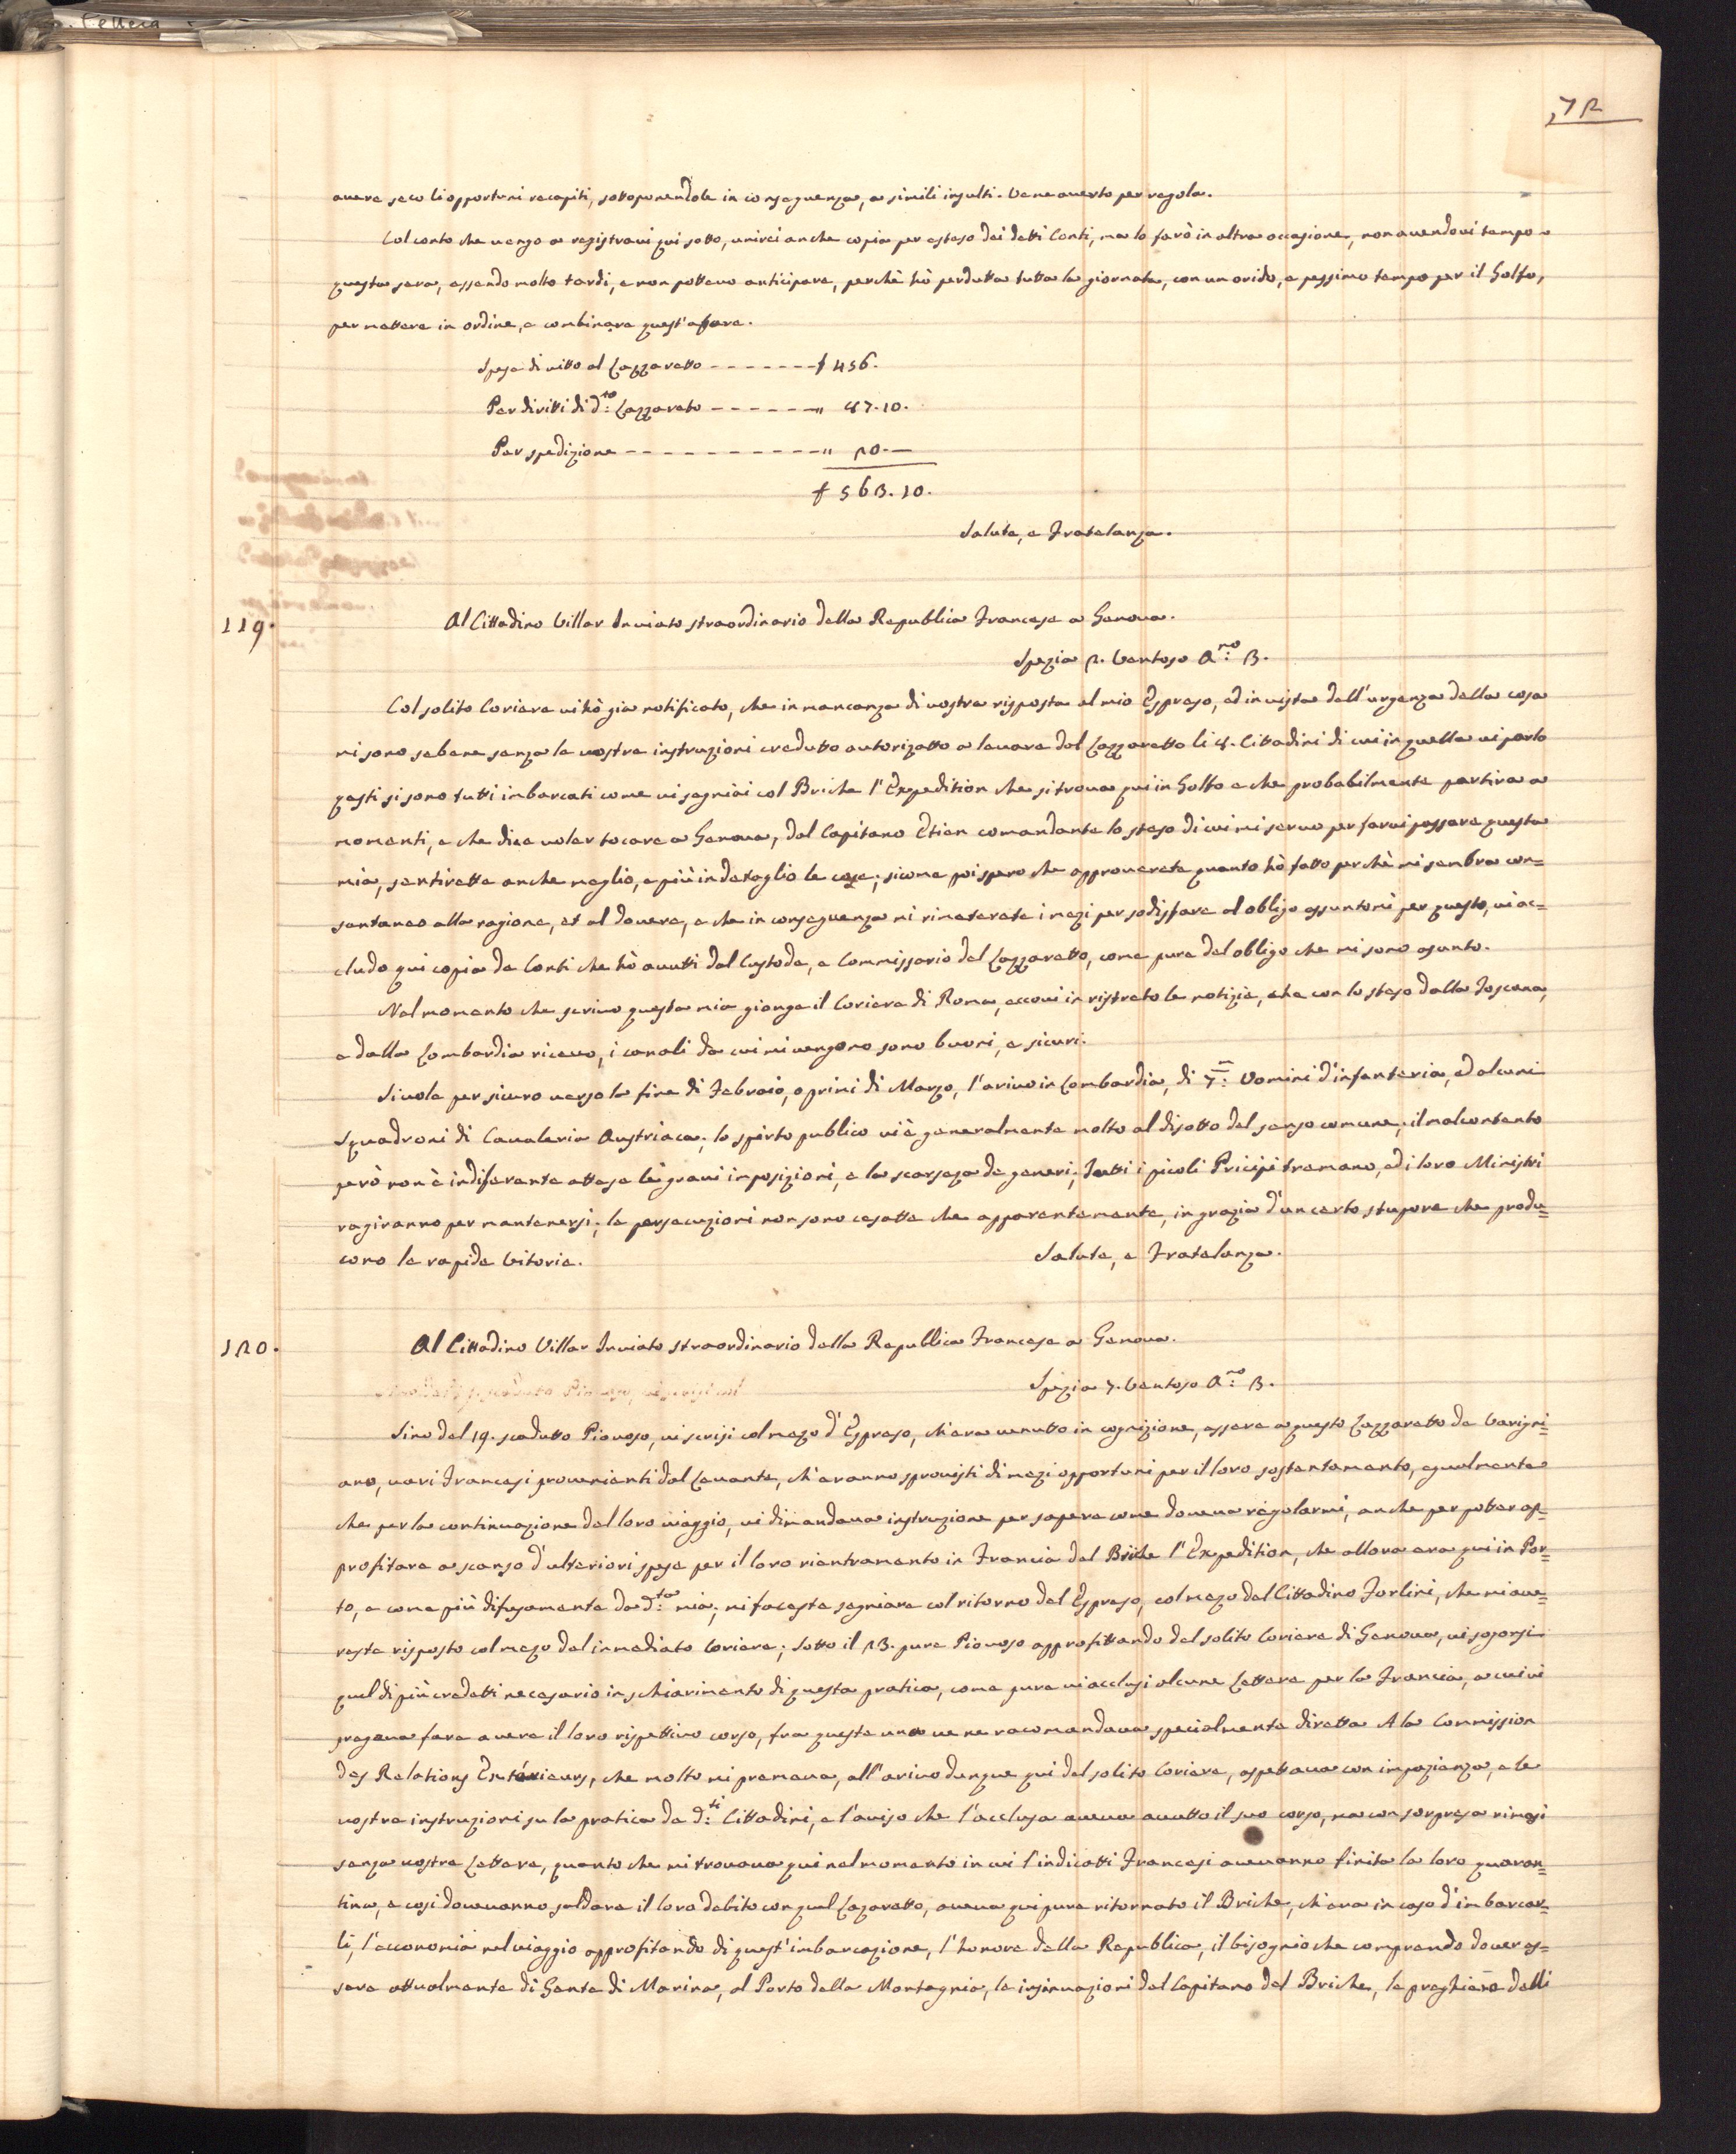 Lettera
72
avere seco li opportuni recapiti, sottoponendole in conseguenza, a simili insulti. Vene averto per regola.
Col conto che vengo a registravi qui sotto, unirei anche copia per esteso dei detti Conti, ma lo farò in altra occasione, non avendovi tempo
questa sera, essendo molto tardi, e non pottevo anticipare, perchè hò perdutta tutta la giornata, con un orido, e pessimo tempo per il Golfo,
per mettere in ordine, e combinare quest'afare.
Spese di vitto al Lazzaretto ------- £ 456.
Per diritti di d:to Lazzareto ------ " 87.10.
Per spedizione ----------- " 20.—
£ 563.10.
Salute, e Fratelanza.
119.
Al Cittadino Villar Inviato straordinario della Republica Francese a Genova.
Spezia 2. Ventoso A:no 3.
Col solito Coriere vi hò gia notificato, che in mancanza di vostra risposta al mio Espreso, ed in vista dell'urgenza della cosa
mi sono sebene senza le vostre instruzioni credutto autorizatto a levare dal Lazzaretto li 8. Cittadini di cui in quella vi parlo
questi si sono tutti imbarcati come vi segniai col Briche l'Expedition che si trova qui in Golfo e che probabilmente partira a
momenti, e che dice voler tocare a Genova, dal Capitano Etien comandante lo steso di cui mi servo per farvi passare questa
mia, sentirette anche meglio, e più in detaglio le cose; sicome poi spero che approverete quanto hò fatto perchè mi sembra con=
sentaneo alla ragione, et al dovere, e che in conseguenza mi rimeterete i mezi per sodisfare al obligo assuntomi per questo, vi ac=
cludo qui copia de Conti che hò avutti dal Custode, e Commissario del Lazzaretto, come pure del obligo che mi sono asunto.
Nel momento che scrivo questa mia gionge il Coriere di Roma, eccovi in ristreto le notizie, che con lo steso dalla Toscana,
e dalla Lombardia ricevo, i canali da cui mi vengono sono buoni, e sicuri.
Si vole per sicuro verso la fine di Febraio, o primi di Marzo, l'arivo in Lombardia, di 7:m Uomini d'infanteria, ed alcuni
squadroni di Cavaleria Austriaca; lo spirto publico vi è generalmente molto al disotto del senso comune; il malcontento
però non è indiferente attese le gravi imposizioni, e la scarseza de generi; Tutti i picoli Pricipi tremano, ed i loro Ministri
ragiranno per mantenersi; le persecuzioni non sono cesatte che apparentemente, in grazia d'un certo stupore che produ=
cono le rapide Vitorie.
Salute, e Fratelanza.
120.
Al Cittadino Villar Inviato straordinario della Republica Francese a Genova.
Spezia 7. Ventoso A:no 3.
Sino del 19. scadutto Piovoso, vi scrisi col mezo d'Espreso, ch'era venutto in cognizione, essere a questo Lazzaretto de Varigni=
ano, vari Francesi provenienti dal Levante, ch'eranno sprovisti di mezi opportuni per il loro sostentamento, egualmente
che per la continuazione del loro viaggio, vi dimandava instruzione per sapere come doveva regolarmi, anche per poter ap=
profitare a scanso d'ulteriori spese per il loro rientramento in Francia del Briche l'Expedition, che allora era qui in Por=
to, e come più difusamente da d:ta mia; mi faceste segniare col ritorno del Espreso, col mezo del Cittadino Forlini, che mi ave=
reste risposto col mezo del inmediato Coriere; Sotto il 23. pure Piovoso approfittando del solito Coriere di Genova, vi sogonsi
quel di più credetti necesario in schiarimento di questa pratica, come pure vi acclusi alcune Lettere per la Francia, a cui vi
pregava fare avere il loro rispettivo corso, fra queste una ve ne racomandava specialmente diretta A la Commission
des Relations Extérieurs, che molto mi premeva, all'arivo dunque qui del solito Coriere, aspettava con impazienza, e le
vostre instruzioni su la pratica de d:ti Cittadini, e l'aviso che l'acclusa aveva avutto il suo corso, ma con sorpresa rimasi
senza vostre Lettere, quanto che mi trovava qui nel momento in cui l'indicatti Francesi avevanno finita la loro quaran=
tina, e cosi dovevanno saldare il loro debito con quel Lazaretto, aveva qui pure ritornato il Briche, ch'era in caso d'imbarcar=
li, l'economia nel viaggio approfitando di quest'imbarcazione, l'honore della Republica, il bisognio che comprendo dover es=
sere attualmente di Gente di Marina, al Porto della Montagnia, le insinuazioni del Capitano del Briche, le preghiere delli